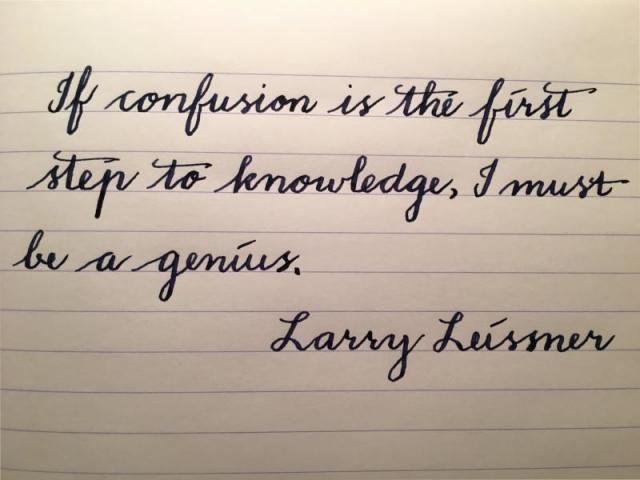 If confusion is the first
step to knowledge, I must
be a genius.
Larry Leissner